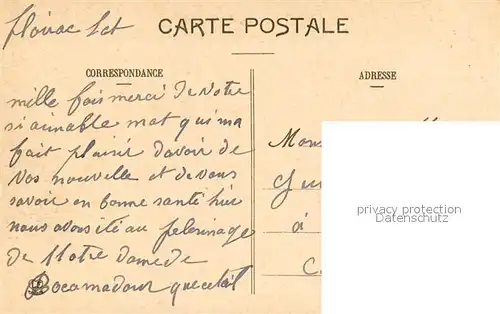 floirac Lot
CARTE POSTALE
CORRESPONDANCE
ADRESSE
mille fois merci de votre
si aimable mot qui ma
fait plaisir davoir de
vos nouvelle et de vous
savoir en bonne santé hier
nous avons été au pelerinage
de Notre dame de
Rocamadour que cetait
Mons
à
C
privacy protection
Datenschutz